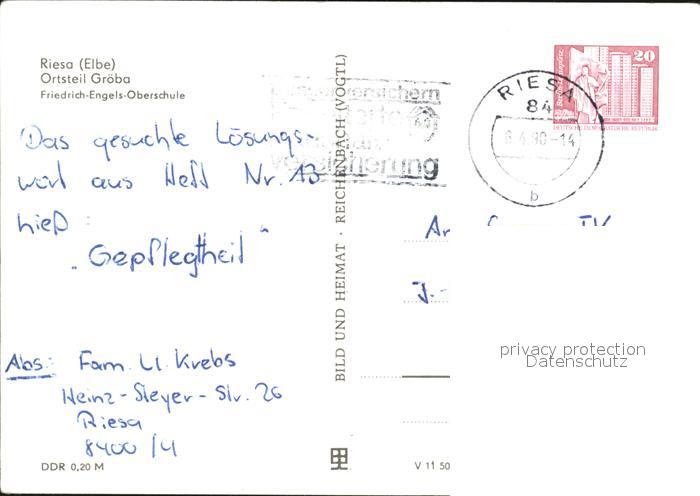 Riesa (Elbe)
Ortsteil Gröba
Friedrich-Engels-Oberschule
Das gesuchte Lösungs-
wort aus Heft Nr. 13
hieß:
"Gepflegtheit"
Abs: Fam. U. Krebs
Heinz-Steyer-Str. 26
Riesa
8400/4
DDR 0,20 M
BILD UND HEIMAT · REICHENBACH (VOGTL)
V 11 50
versichern
versicherung
RIESA
84
6.4.90-14
b
20
DEUTSCHE DEMOKRATISCHE REPUBLIK
J.-
privacy protection
Datenschutz